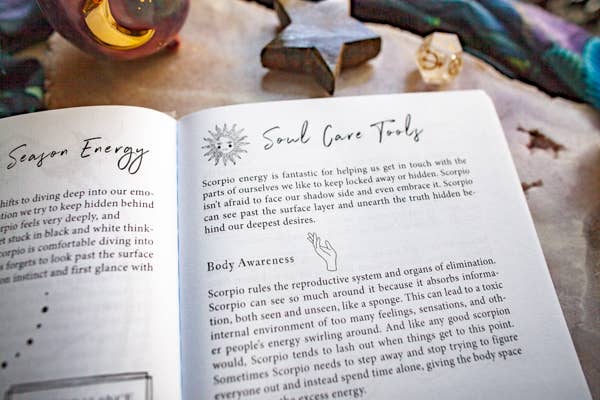 Season Energy
shifts to diving deep into our emo-
tion we try to keep hidden behind
rpio feels very deeply, and
et stuck in black and white think-
corpio is comfortable diving into
s forgets to look past the surface
on instinct and first glance with
Soul Care Tools
Scorpio energy is fantastic for helping us get in touch with the
parts of ourselves we like to keep locked away or hidden. Scorpio
isn't afraid to face our shadow side and even embrace it. Scorpio
can see past the surface layer and unearth the truth hidden be-
hind our deepest desires.
Body Awareness
Scorpio rules the reproductive system and organs of elimination.
Scorpio can see so much around it because it absorbs informa-
tion, both seen and unseen, like a sponge. This can lead to a toxic
internal environment of too many feelings, sensations, and oth-
er people's energy swirling around. And like any good scorpion
would, Scorpio tends to lash out when things get to this point.
Sometimes Scorpio needs to step away and stop trying to figure
everyone out and instead spend time alone, giving the body space
the excess energy.